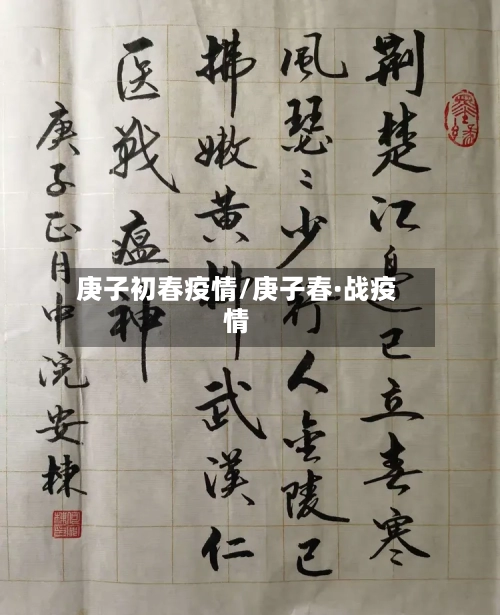 荆楚江邊已立春寒
風瑟〻少行人金陵已
拂嫩黄柳武漢仁
医戰瘟神
庚子正月中浣安棟
庚子初春疫情/庚子春·战疫
情